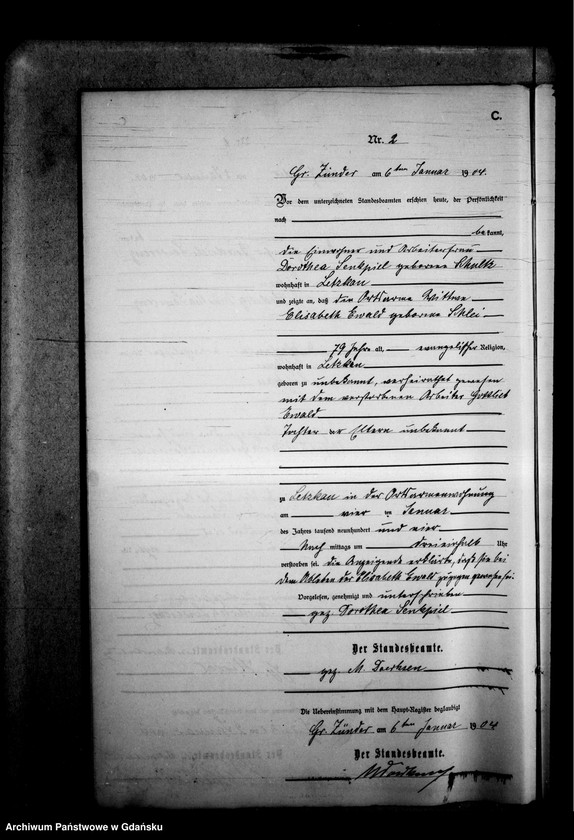 C.
Nr. 2
Gr. Zünder am 6ten Januar 1904.
Vor dem unterzeichneten Standesbeamten erschien heute, der Persönlichkeit
nach
bekannt,
die Einwohner und Arbeiterfrau
Dorothea Senkpiel geborene Schultz
wohnhaft in Letzkau
und zeigte an, daß die Ortsarme Wittwe
Elisabeth Ewald geborene Schlei
79 Jahre alt, evangelischer Religion,
wohnhaft in Letzkau
geboren zu unbekannt, verheirathet gewesen
mit dem verstorbenen Arbeiter Gottlieb
Ewald
Tochter der Eltern unbekannt
zu Letzkau in der Ortsarmenwohnung
am vier ten Januar
des Jahres tausend neunhundert und vier
Nach mittags um dreieinhalb Uhr
verstorben sei. die Anzeigende erklärte, daß sie bei
dem Ableben der Elisabeth Ewald zugegen gewesen sei.
Vorgelesen, genehmigt und unterschrieben
gez. Dorothea Senkpiel
Der Standesbeamte.
gez. M.
Die Uebereinstimmung mit dem Haupt-Register beglaubigt
Gr. Zünder am 6ten Januar 1904
Der Standesbeamte.
Archiwum Państwowe w Gdańsku